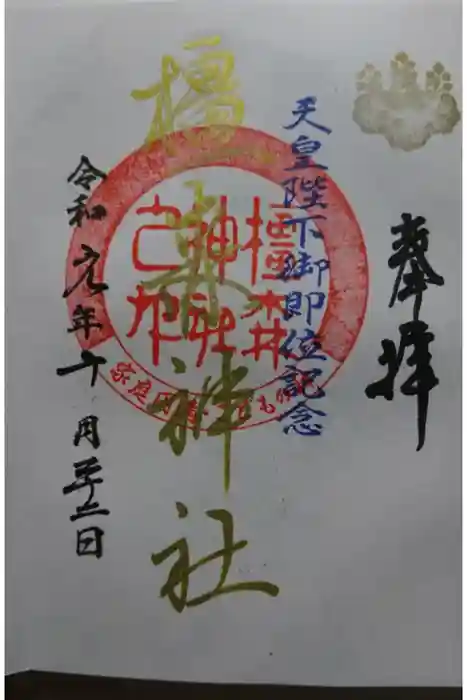 奉拝
天皇陛下御即位記念
橿森神社
橿森
神社
之印
家庭円満
令和元年十月二十二日